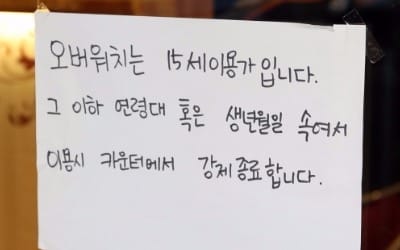 오버워치는 15세이용가 입니다.
그 이하 연령대 혹은 생년월일 속여서
이용시 카운터에서 강제종료합니다.